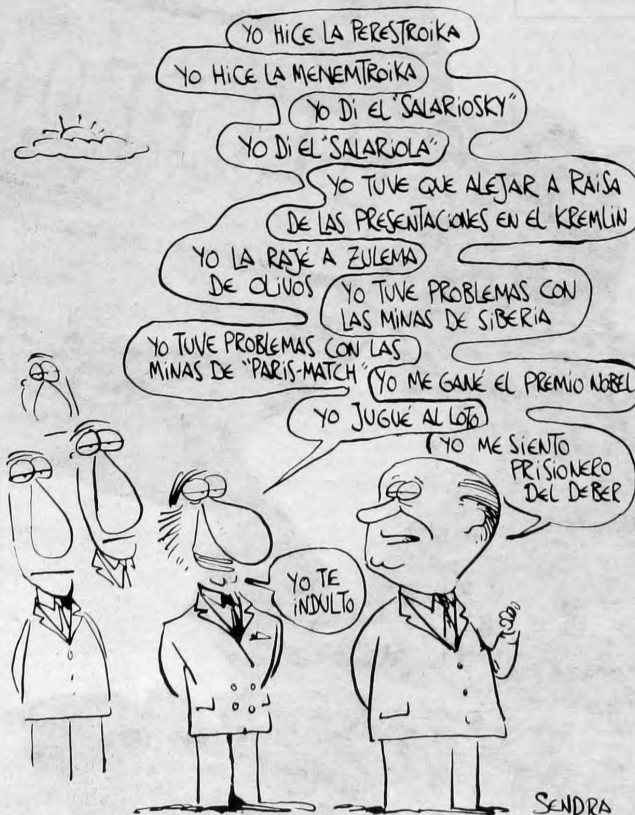 YO HICE LA PERESTROIKA
YO HICE LA MENEMTROIKA
YO DI EL "SALARIOSKY"
YO DI EL "SALARIOLA"
YO TUVE QUE ALEJAR A RAISA
DE LAS PRESENTACIONES EN EL KREMLIN
YO LA RAJÉ A ZULEMA
DE OLIVOS
YO TUVE PROBLEMAS CON
LAS MINAS DE SIBERIA
YO TUVE PROBLEMAS CON LAS
MINAS DE "PARIS-MATCH"
YO ME GANÉ EL PREMIO NOBEL
YO JUGUÉ AL LOTO
YO ME SIENTO
PRISIONERO
DEL DEBER
YO TE
INDULTO
SENDRA